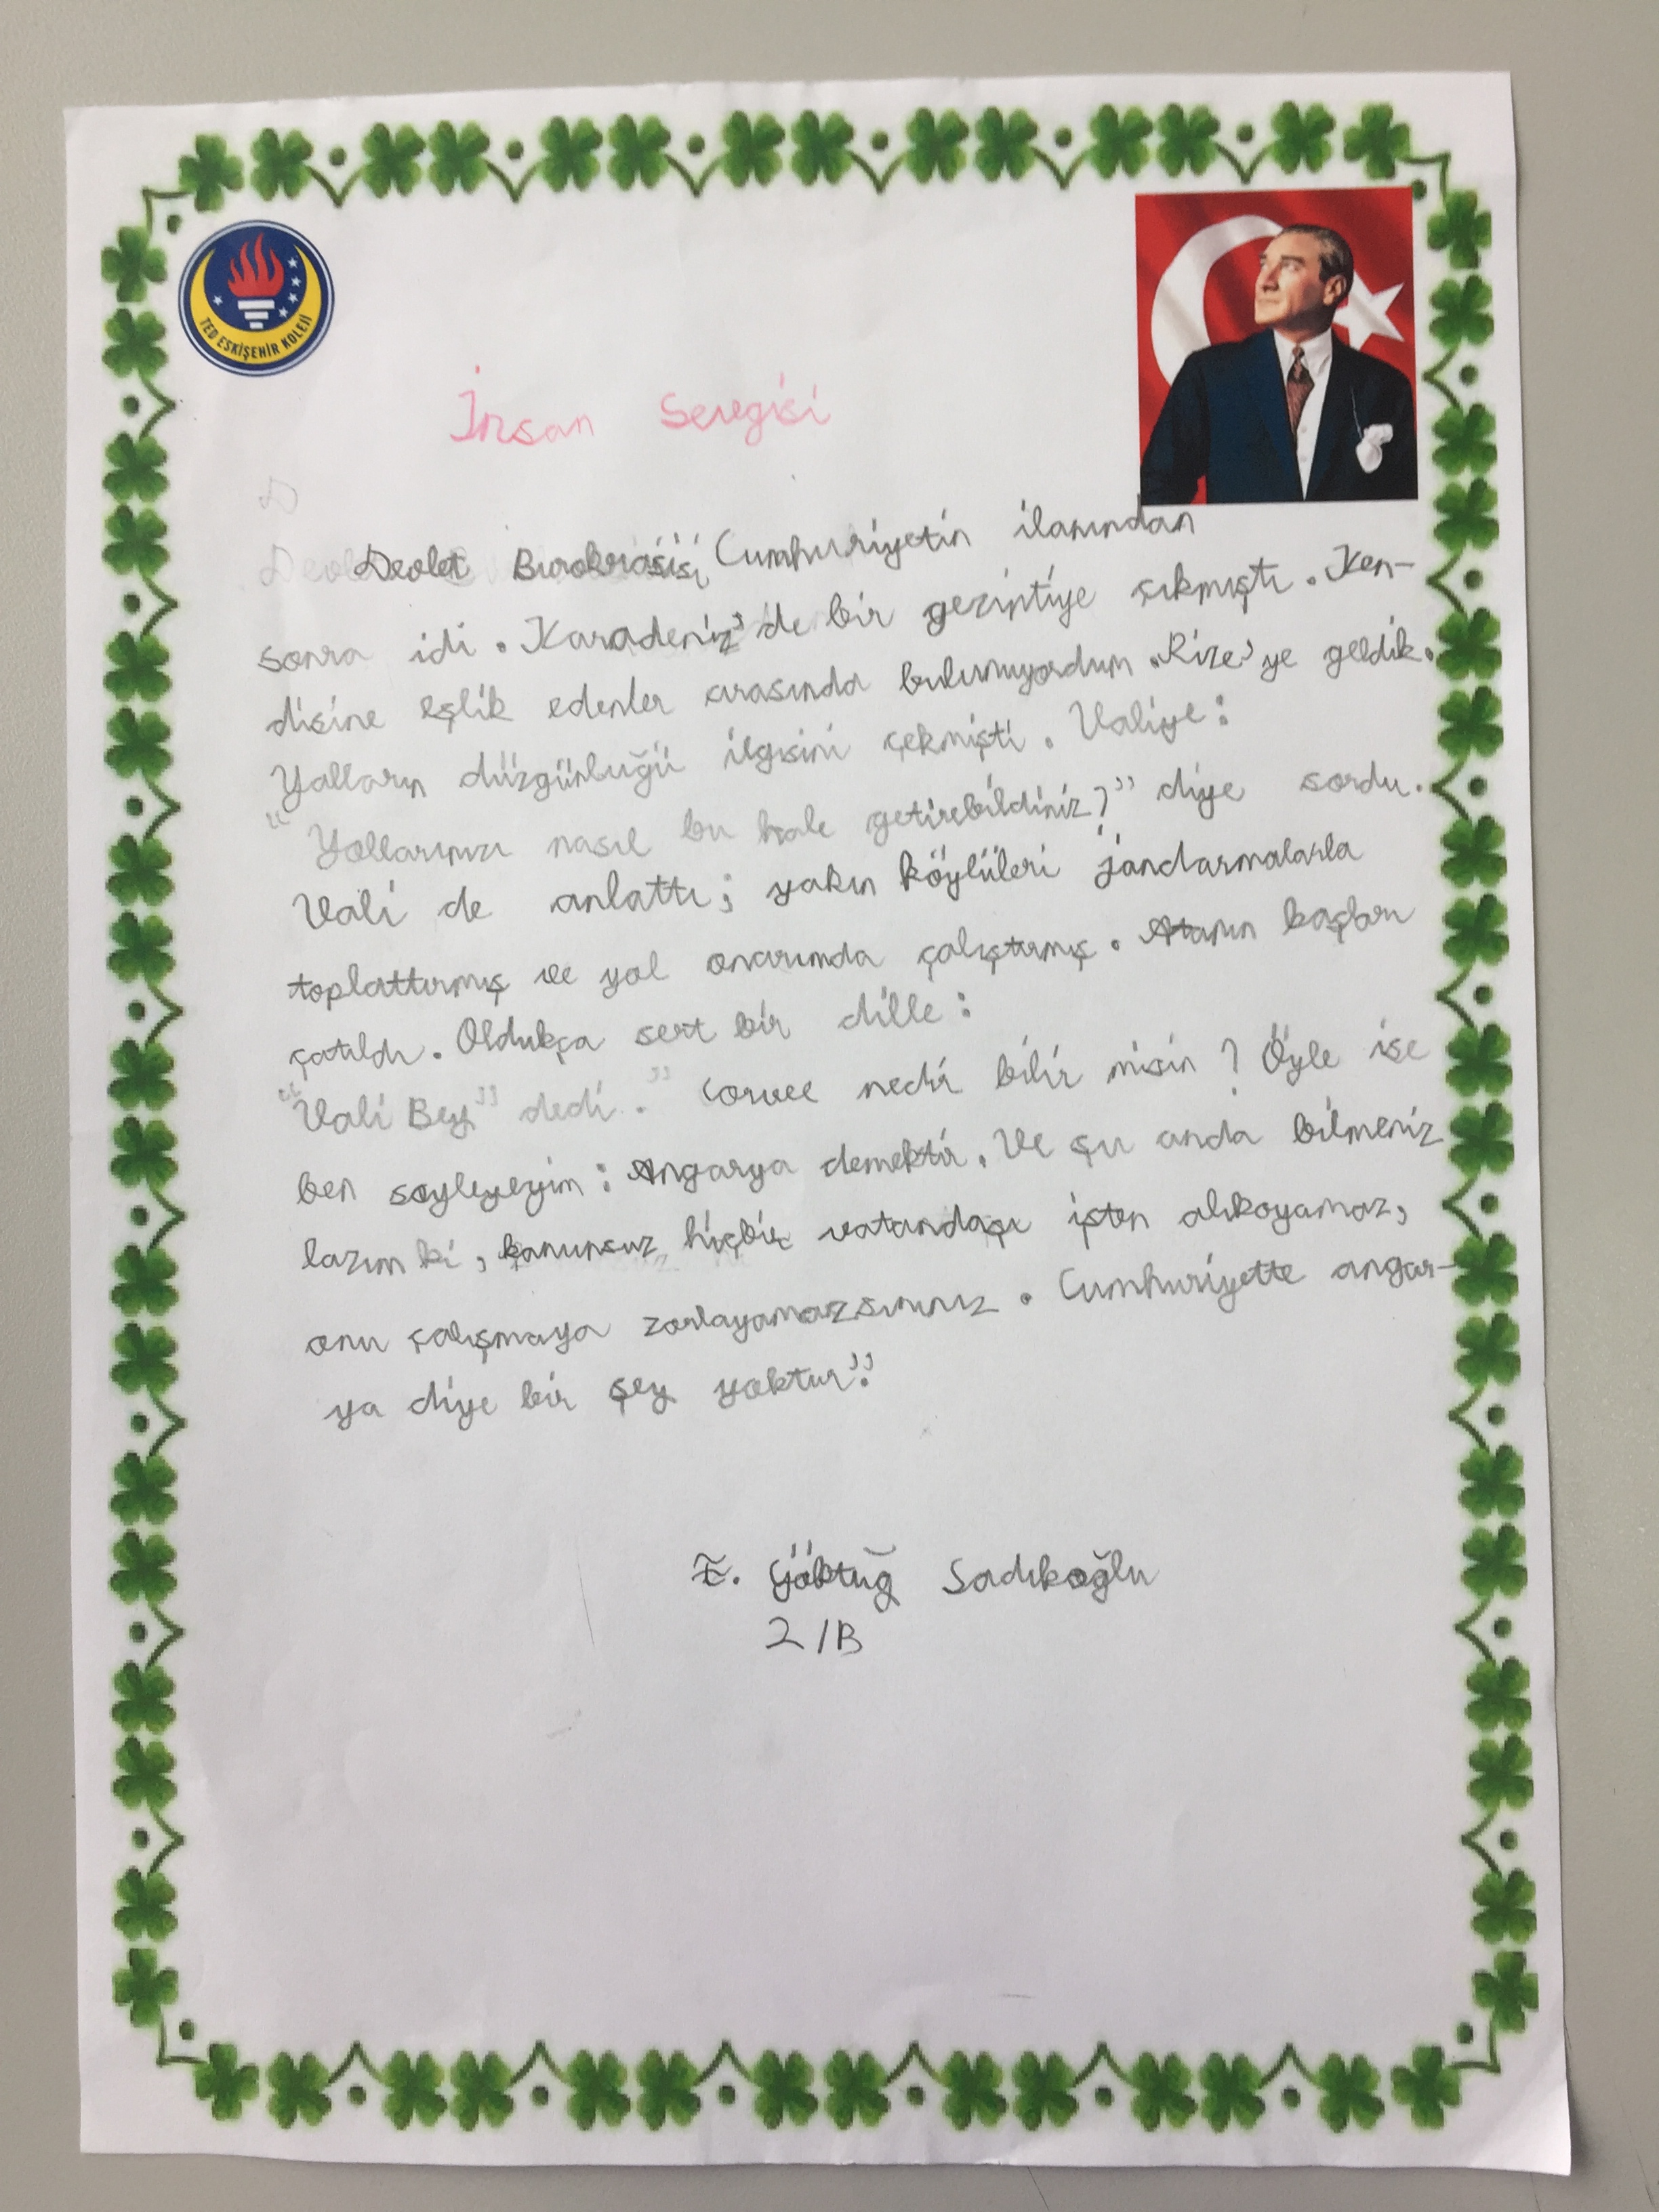 TED ESKİŞEHİR KOLEJİ
İnsan Sevgisi
Devlet Bürokrasisi Cumhuriyetin ilanından
sonra idi. Karadeniz'de bir gezintiye çıkmıştı. Ken-
disine eşlik edenler sırasında bulunuyordum. Rize'ye geldik.
Yolların düzgünlüğü ilgisini çekmişti. Valiye:
"Yollarınızı nasıl bu hale getirebildiniz?" diye sordu.
Vali de anlattı; yakın köylüleri jandarmalarla
toplattırmış ve yol onarımda çalıştırmış. Atanın kaşları
çatıldı. Oldukça sert bir dille:
"Vali Bey" dedi." Corvee nedir bilir misin? Öyle ise
ben söyleyeyim: Angarya demektir. Ve şu anda bilmeniz
lazım ki, kanunsuz hiçbir vatandaşı işten alıkoyamaz,
onu çalışmaya zorlayamazsınınız. Cumhuriyette angar-
ya diye bir şey yoktur."
Göktuğ Sadıkoğlu
2/B